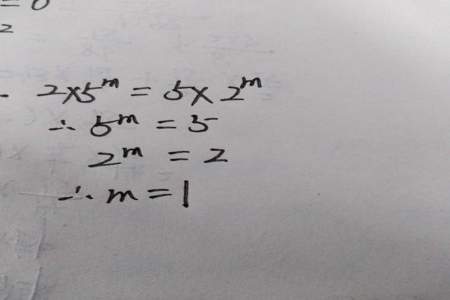 = 0
2
2×5^m = 5×2^m
∴ 5^m = 5
2^m = 2
∴ m = 1